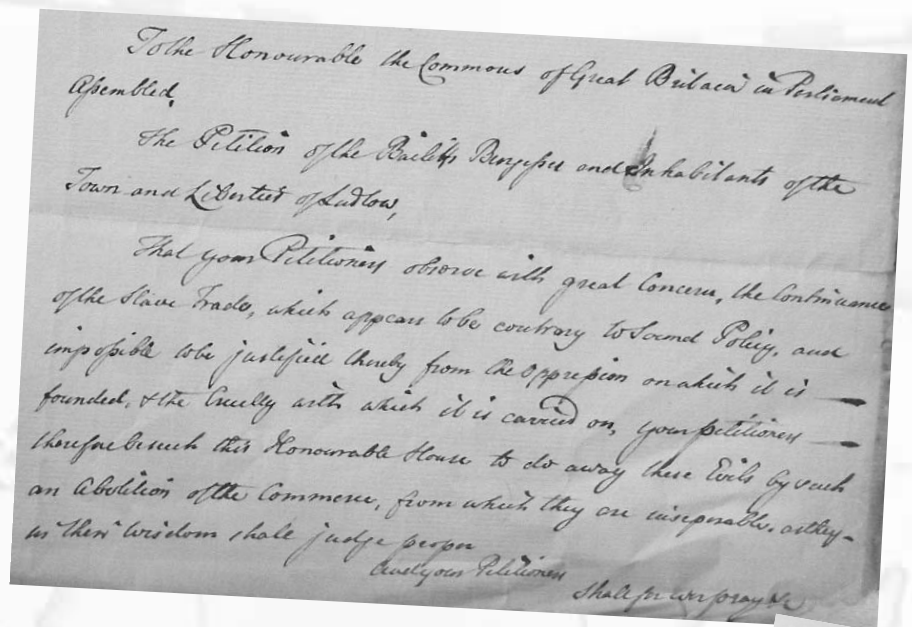 To the Honourable the Commons of Great Britain in Parliament
Assembled,
The Petition of the Bailiffs Burgesses and Inhabitants of the
Town and Liberties of Ludlow,
That your Petitioners observe with great Concern, the Continuance
of the Slave Trade, which appears to be contrary to Sound Policy, and
impossible to be justified thereby from the oppression on which it is
founded, & the Cruelty with which it is carried on, your petitioners
therefore beseech this Honourable House to do away these Evils by such
an Abolition of the Commerce, from which they are inseperable, as they
in their wisdom shall judge proper
And your Petitioners
shall for ever pray &c